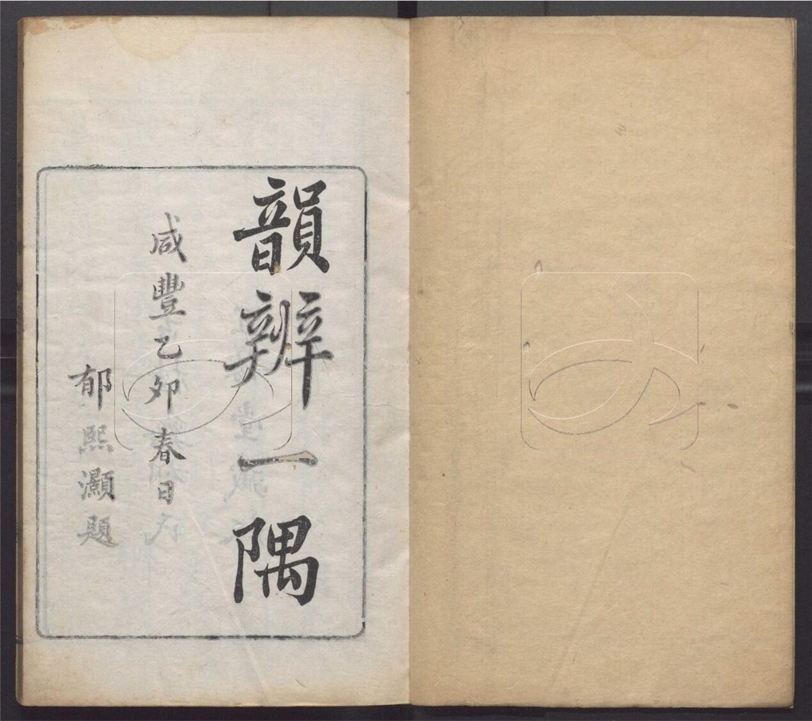 韻辨一隅
咸豐乙卯春日
郁熙灝題